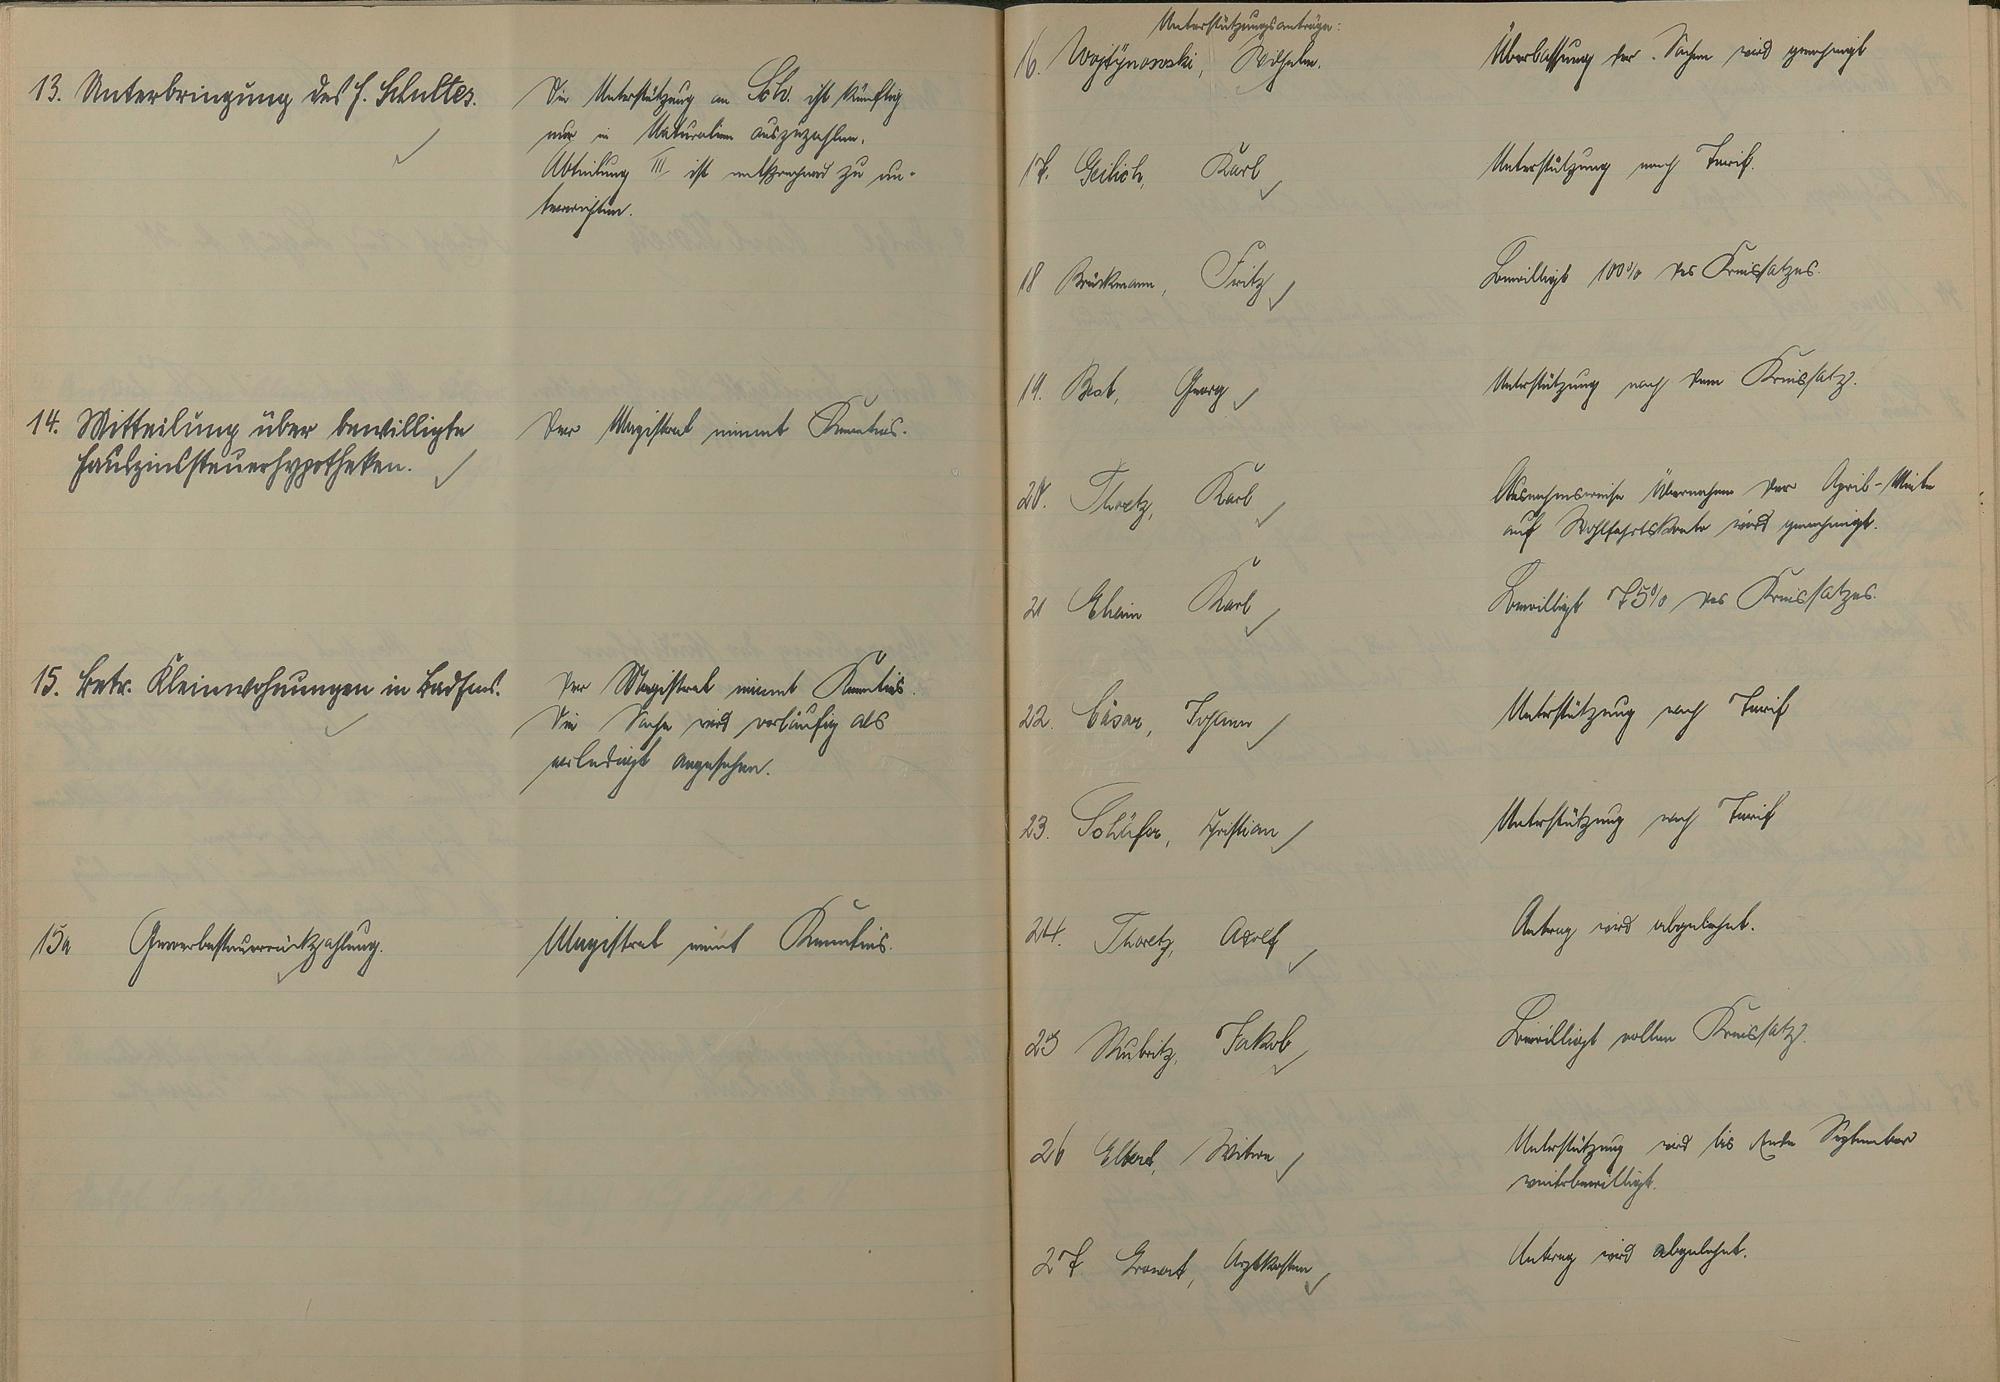 13. Unterbringung des H. Schultes.
Die Unterstützung an Sch. ist künftig
nur in Naturalien auszuzahlen.
Abteilung III ist entsprechend zu un-
terrichten.
14. Mitteilung über bewilligte
Hauszinssteuerhypotheken.
Der Magistrat nimmt Kenntnis.
15. Betr. Kleinwohnungen in Bad Ems.
Der Magistrat nimmt Kenntnis.
Die Sache wird vorläufig als
erledigt angesehen.
15a Gewerbesteuerrückzahlung.
Magistrat nimmt Kenntnis.
Unterstützungsanträge:
16. Wojtynowski, Wilhelm.
Überlassung der Sachen wird genehmigt
17. Geilich, Karl
Unterstützung nach Tarif.
18 Brückmann, Fritz
Bewilligt 100% des Kreissatzes.
19. Best, Georg
Unterstützung nach dem Kreissatz.
20. Thoretz, Karl
Ausnahmsweise Übernahme der April-Miete
auf Wohlfahrtskonto wird genehmigt.
21 Karl
Bewilligt 75% des Kreissatzes.
22. Cäsar, Johann
Unterstützung nach Tarif
23. Schäfer, Christian
Unterstützung nach Tarif
24. Thoretz, Adolf
Antrag wird abgelehnt.
25 Jakob
Bewilligt vollen Kreissatz.
26 Elbert, Witwe
Unterstützung wird bis Ende September
weiterbewilligt.
27 Arztkosten
Antrag wird abgelehnt.